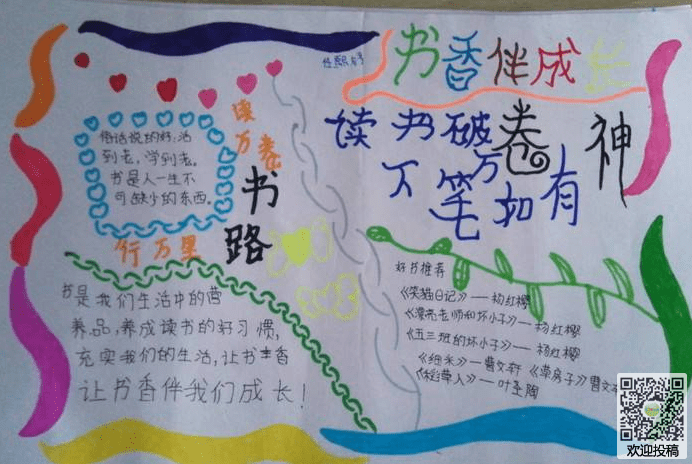 书香伴成长
读万卷
书
路
行万里
俗话说的好,活
到老,学到老。
书是人一生不
可缺少的东西.
书是我们生活中的营
养品,养成读书的好习惯,
充实我们的生活,让书香
让书香伴我们成长!
读书破万卷
下笔如有神
好书推荐
《笑猫日记》——杨红樱
《漂亮老师和坏小子》——杨红樱
《五三班的坏小子》——杨红樱
《细米》——曹文轩 《草房子》曹文
《稻草人》——叶圣陶
欢迎投稿